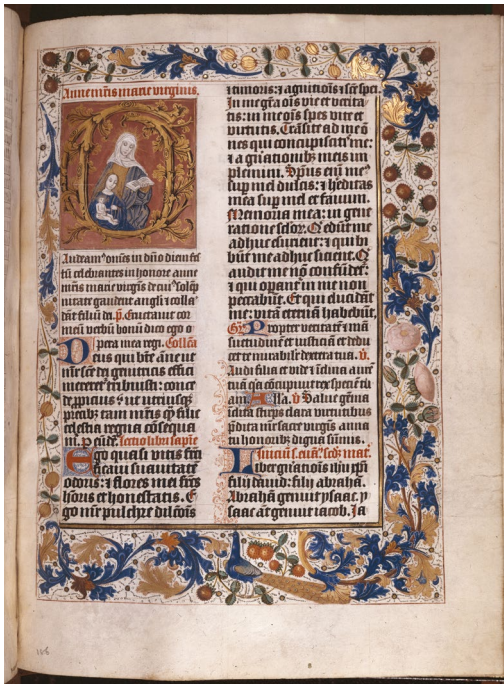 Anne mr̄is marie virginis.
Audeam⁹ om̄es in dn̄o diem fes
tū celebrantes in honore anne
mr̄is marie virgīs de cui⁹ solēp
nitate gaudent angl̄i ⁊ colla
dāt filiū dei. p̄. Eructavit cor
meū verbū bonū dico ego o
pera mea regi. Collc̄a
Deus qui btē āne ut
sc̄e dei genitricis effici
meretet̄ tribuisti: conce
de ppicius ⁊ ut utriusq̄
precibȝ tam mr̄is q̄ filie
celestia regna cōsequa
m̄. p eūdē. lectio libri sapīe
Ego quasi vitis fru
ctificavi suavitatē
odoris: ⁊ flores mei fruct⁹
honoris et honestatis. E
go mr̄ pulchre dilc̄ois
⁊ timoris: ⁊ agnitiōis ⁊ sc̄e spei.
In me gr̄a oīs vie et verita
tis: in me oīs spes vite et
virtutis. Trāsite ad me ō
nes qui concupiscitis me:
⁊ a gn̄ationibȝ meis im
plemini. Spūs em̄ me⁹
sup mel dulcis: ⁊ hēditas
mea sup mel et favum.
Memoria mea: in gene
ratione sc̄lor̄. Q̄ edūt me
adhuc esurient: ⁊ qui bi
būt me adhuc sicient. Q̄
audit me nō confūdet̄:
⁊ qui opant̄ in me non
peccabūt. Et qui elucidāt
me: vitā eternā habebūt.
Gr̄. Propter veritatē ⁊ mā
suetudinē et iusticiā et dedu
cet te mirabilit̄ dextera tua. v̄.
Audi filia et vide ⁊ iclina aurē
tuā q̄a cōcupivit rex speciē tu
am. Alla. v̄. Salve gēma
celica stirps clara virtutibus
p̄dita mr̄ sacre virgīs anna
tu honoribȝ digna sūmis.
Iniciū s. euā. scd̄ȝ mat̄.
Liber gn̄ationis ihū xp̄i
filij david: filij abrahā.
Abrahā genuit ysaac. y
saac āt genuit iacob. Ja